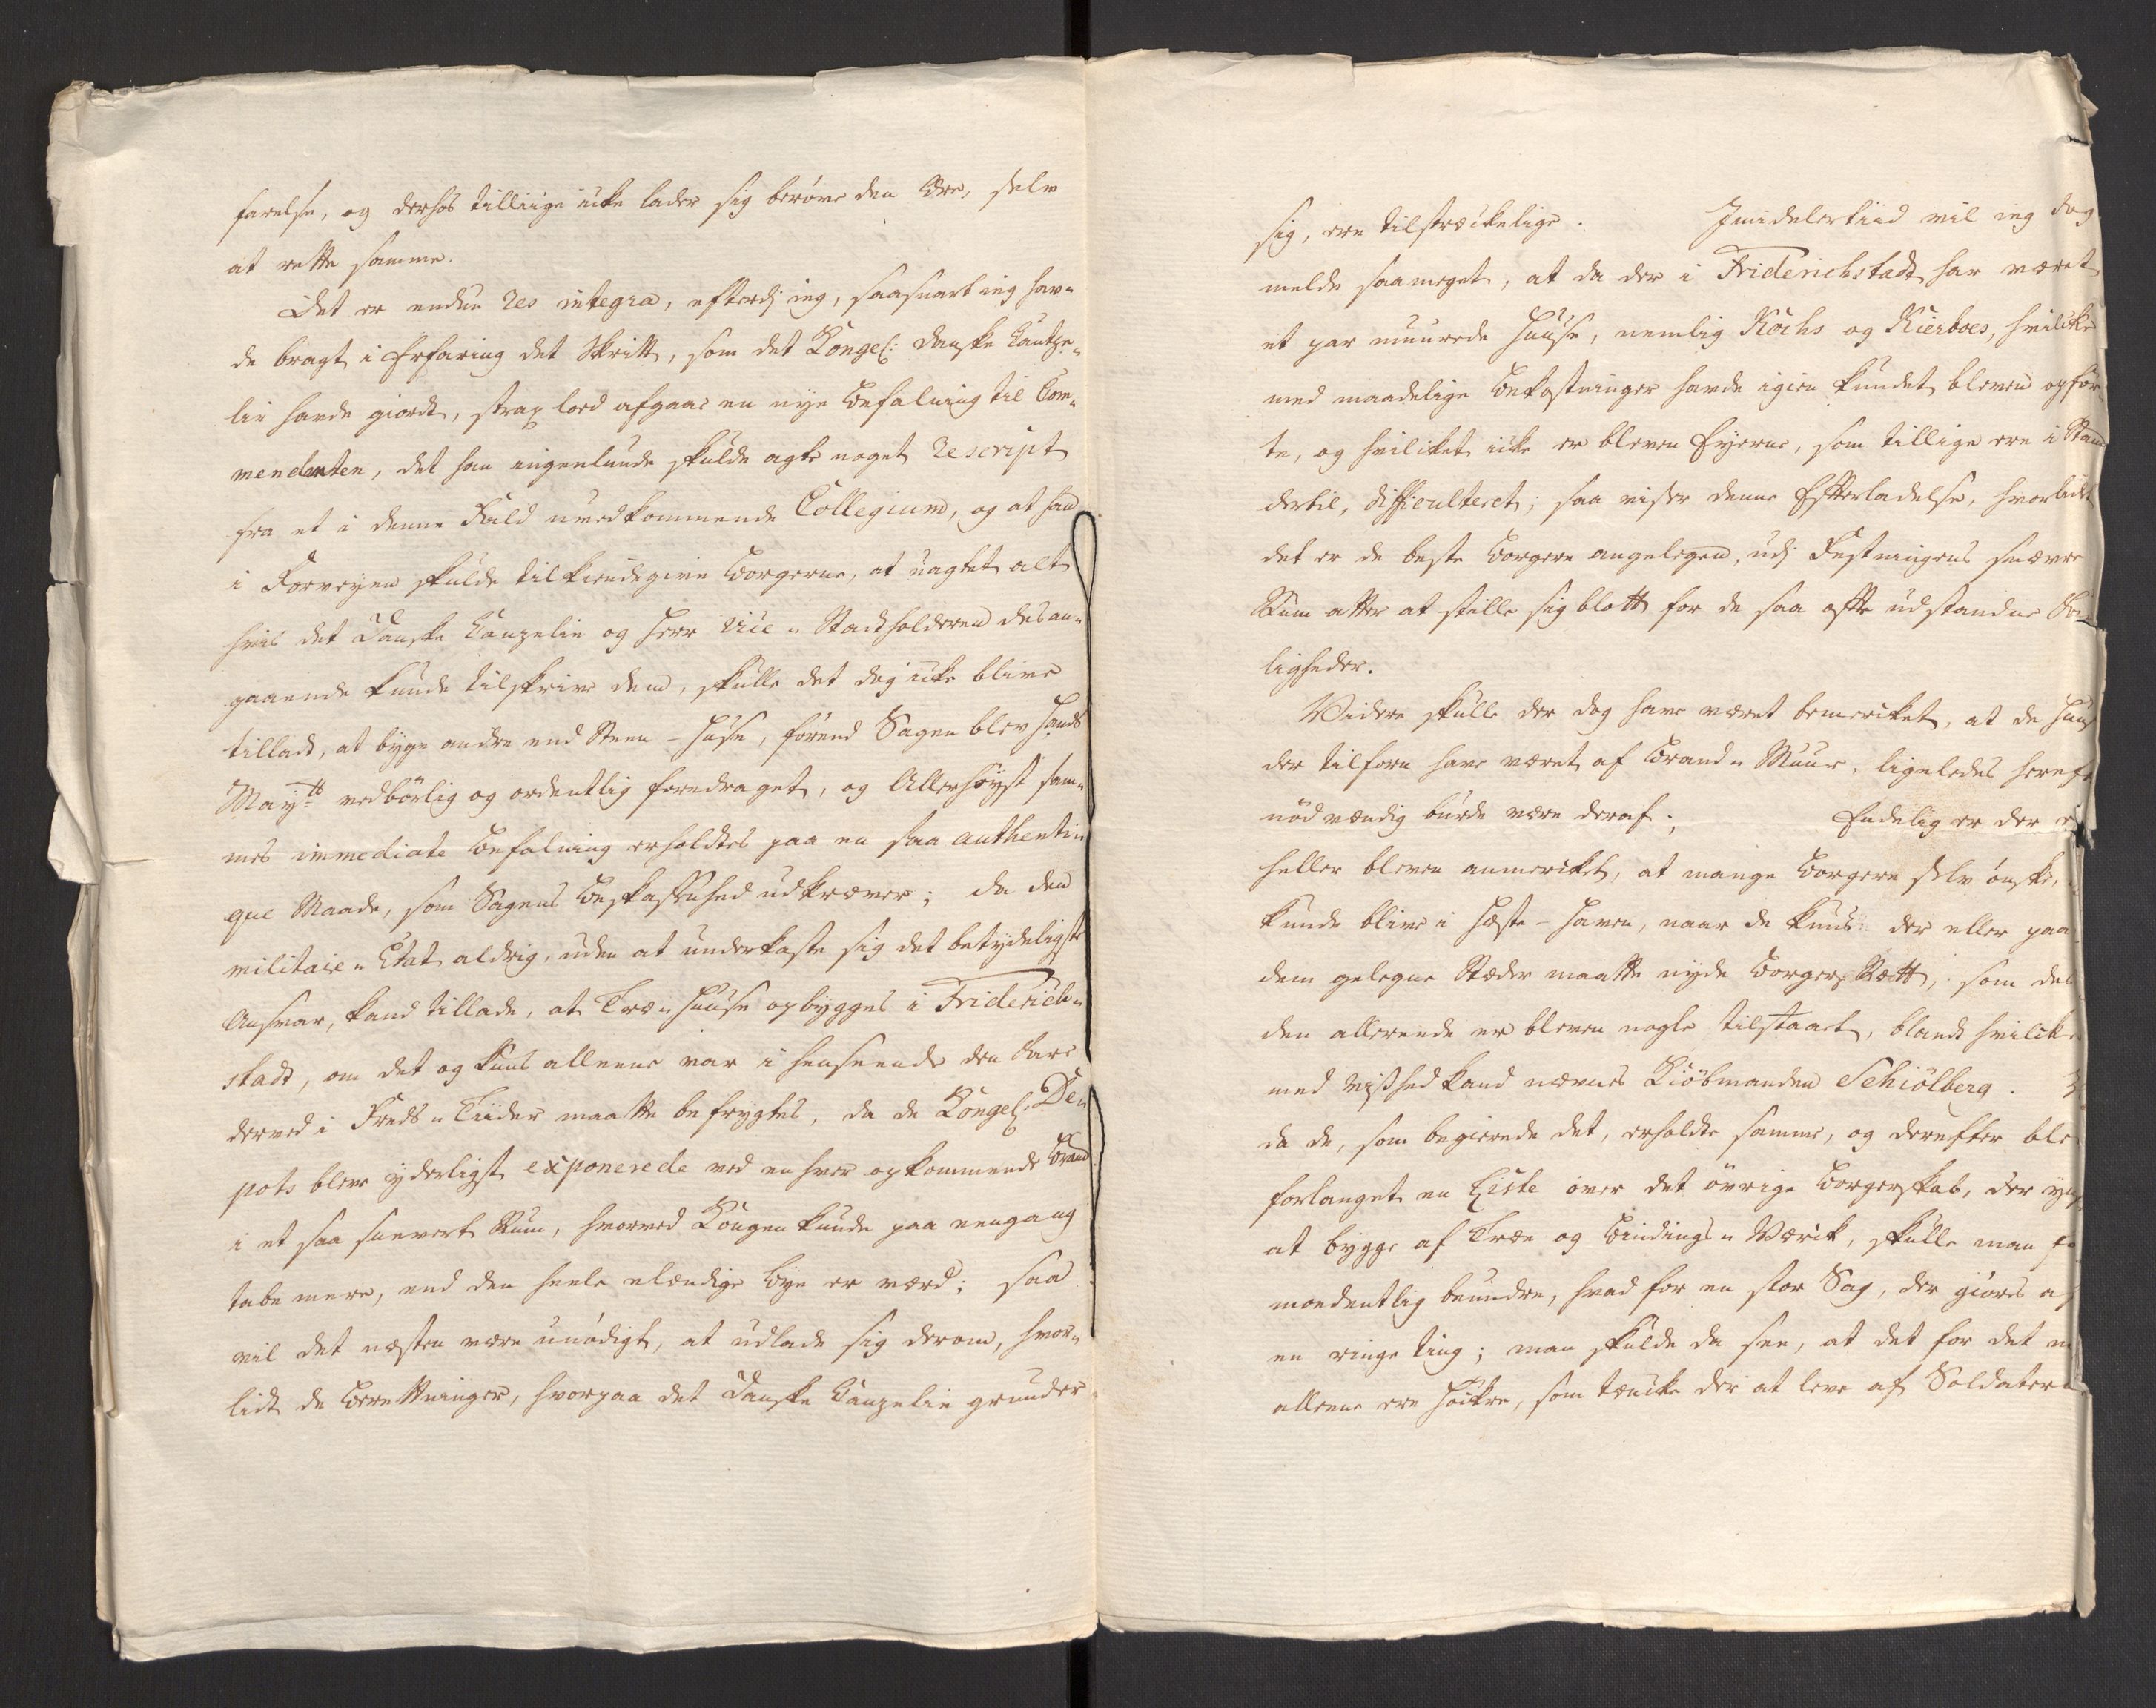 farelse, og derhos tilliige icke lader sig berøve den Ære, selv
at rette samme.
Det er endnu res integra, efterdj ieg, saasnart ieg hav„
de bragt i Erfaring det Skritt, som det Kongel: danske Cantze„
lie havde giordt, strax loed afgaae en nye Befalning til Com„
mendanten, det han ingenlunde skulde agte noget rescript
fra et i denne Fald uvedkommende Collegium, og at han
i Forveyen skulde tilkiendegive Borgerne, at uagtet alt
hvis det Danske Canzelie og Herr Vice„Stadtholderen desan„
gaaende kunde tilskrive dem, skulle det dog icke blive
tilladt, at byge andre end Steen-Huse, førend Sagen blev Hands
Mayts vedbørlig og ordentlig foredraget, og Allerhøyst sam„
mes immediate Befalning erholdtes paa en saa authenti„
que Maade, som Sagens Beskaffenhed udkræver; da den
militaire„Etat aldrig, uden at underkaste sig det betydeligste
Ansvar, kand tillade, at Træ„Huuse opbygges i Friderich„
stadt, om det og kuns alleene var i henseende den Fare
derved i Freds„Tiider maatte befrygtes, da de Kongel: De„
pots blev yderligst exponerede ved en hver opkommende Brand
i et saa snevert Rum, hvorved Kongen kunde paa eengang
tabe mere, end den heele elendige Bye er værd; saa
vil det næsten være unødigt, at udlade sig derom, hvor„
lidt de Berettninger, hvorpaa det Danske Canzelie grunder
sig, ere tilstræckelige. Imidlertiid vil ieg dog
melde saameget, at da der i Friderichstadt har været
et par muurede Huuse, nemlig Kochs og Kierboes, hvilcke
med maadelige Bekostninger havde igien kundet bleven opfør„
te, og hvilcket icke er bleven Eyerne, som tillige ere i Stand
dertil, difficulteret; saa viser denne Efterladelse, hvorlidt
det er de beste Borgere angelegen, udj Festningens snævre
Rum atter at stille sig blott for de saa ofte udstandne
ligheder.
Videre skulle der dog have været bemercket, at de Huuse
der tilforn have været af Brand„Muur, ligeledes
nødvendig burde være deraf; Endelig er der
heller bleven anmercket, at mange Borgere selv ønske,
kunde blive i Hæste-Haven, naar de kuns der eller paa
dem gelegne Stæder maatte nyde Borgers Rætt, som des
den allerede er bleven nogle tilstaaet, blandt hvilcke
med Vished kand nævnes Kiøbmanden Schiölberg.
da de, som begierede det, erholdte samme, og derefter ble
forlanget en Liste over det øvrige Borgerskab, der
at bygge af Træe og Bindings„Værck, skulle man
moedentlig beundre, hvad for en stor Sag, der giøres af
en ringe ting; man skulde da see, at det for det
alleene ere Høckere, som tæncke der at leve af Soldatern